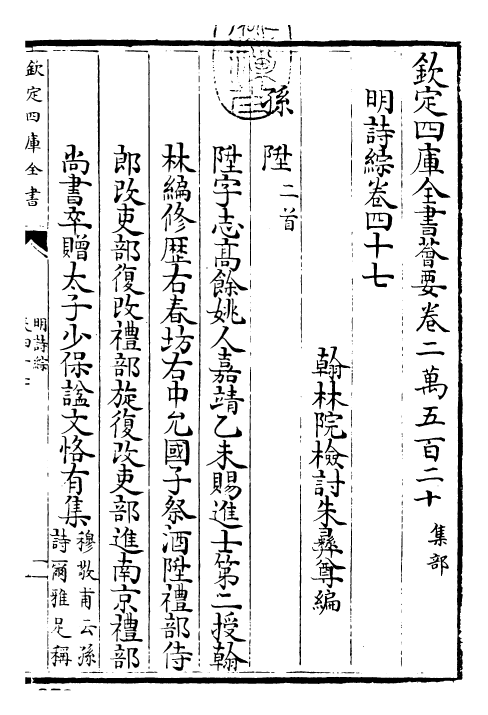 欽定四庫全書薈要卷二萬五百二十 集部
明詩綜卷四十七
翰林院檢討朱彝尊編
孫陞 二首
陞字志高餘姚人嘉靖乙未賜進士第二授翰
林編修歴右春坊右中允國子祭酒陞禮部侍
郎改吏部復改禮部旋復改吏部進南京禮部
尚書卒贈太子少保諡文恪有集 穆敬甫云孫
詩爾雅足稱
欽定四庫全書
明詩綜